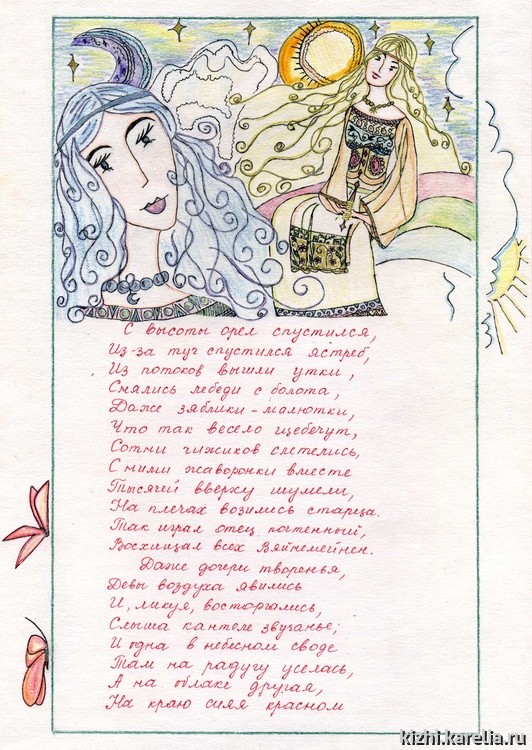 С высоты орел спустился,
Из-за туч спустился ястреб,
Из потоков вышли утки,
Снялись лебеди с болота,
Даже зяблики-малютки,
Что так весело щебечут,
Сотни чижиков слетелись,
С ними жаворонки вместе
Тысячей вверху шумели,
На плечах возились старца.
Так играл отец почтенный,
Восхищал всех Вяйнемейнен.
Даже дочери творенья,
Девы воздуха явились
И, ликуя, восторгались,
Слыша кантеле звучанье;
И одна в небесном своде
Там на радугу уселась,
А на облаке другая,
На краю сияя красном
kizhi.karelia.ru